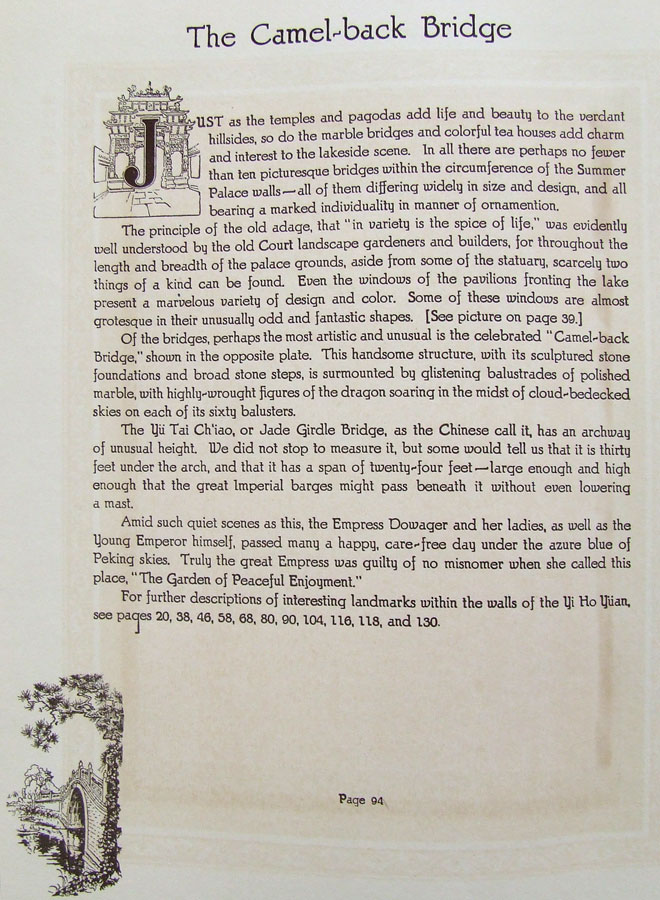 The Camel-back Bridge
JUST as the temples and pagodas add life and beauty to the verdant
hillsides, so do the marble bridges and colorful tea houses add charm
and interest to the lakeside scene. In all there are perhaps no fewer
than ten picturesque bridges within the circumference of the Summer
Palace walls—all of them differing widely in size and design, and all
bearing a marked individuality in manner of ornamention.
The principle of the old adage, that "in variety is the spice of life," was evidently
well understood by the old Court landscape gardeners and builders, for throughout the
length and breadth of the palace grounds, aside from some of the statuary, scarcely two
things of a kind can be found. Even the windows of the pavilions fronting the lake
present a marvelous variety of design and color. Some of these windows are almost
grotesque in their unusually odd and fantastic shapes. [See picture on page 39.]
Of the bridges, perhaps the most artistic and unusual is the celebrated "Camel-back
Bridge," shown in the opposite plate. This handsome structure, with its sculptured stone
foundations and broad stone steps, is surmounted by glistening balustrades of polished
marble, with highly-wrought figures of the dragon soaring in the midst of cloud-bedecked
skies on each of its sixty balusters.
The Yü Tai Ch'iao, or Jade Girdle Bridge, as the Chinese call it, has an archway
of unusual height. We did not stop to measure it, but some would tell us that it is thirty
feet under the arch, and that it has a span of twenty-four feet—large enough and high
enough that the great Imperial barges might pass beneath it without even lowering
a mast.
Amid such quiet scenes as this, the Empress Dowager and her ladies, as well as the
Young Emperor himself, passed many a happy, care-free day under the azure blue of
Peking skies. Truly the great Empress was guilty of no misnomer when she called this
place, "The Garden of Peaceful Enjoyment."
For further descriptions of interesting landmarks within the walls of the Yi Ho Yüan,
see pages 20, 38, 46, 58, 68, 80, 90, 104, 116, 118, and 130.
Page 94